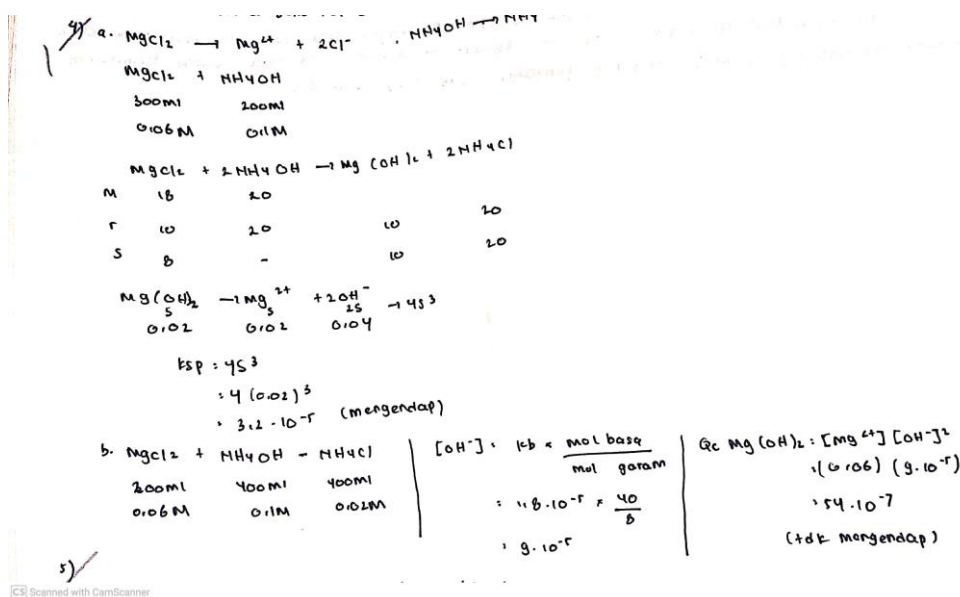 4) a. MgCl2 → Mg2+ + 2Cl- . NH4OH → NH4
MgCl2 + NH4OH
300ml 200ml
0,06 M 0,1 M
MgCl2 + 2 NH4OH → Mg (OH)2 + 2NH4Cl
M 18 20
r 10 20 10 20
S 8 - 10 20
Mg(OH)2 → Mg2+ + 2OH- → 4s3
s s 2s
0,02 0,02 0,04
Ksp : 4s3
: 4 (0.02)3
: 3,2 . 10-5 (mengendap)
b. MgCl2 + NH4OH - NH4Cl
300ml 400ml 400ml
0,06 M 0,1M 0,02M
[OH-] : Kb × mol basa
mol garam
: 1,8.10-5 × 40
8
: 9.10-5
Qc Mg (OH)2 : [Mg2+] [OH-]2
: (0,06) (9.10-5)
: 54.10-7
(tdk mengendap)
5)
CS Scanned with CamScanner